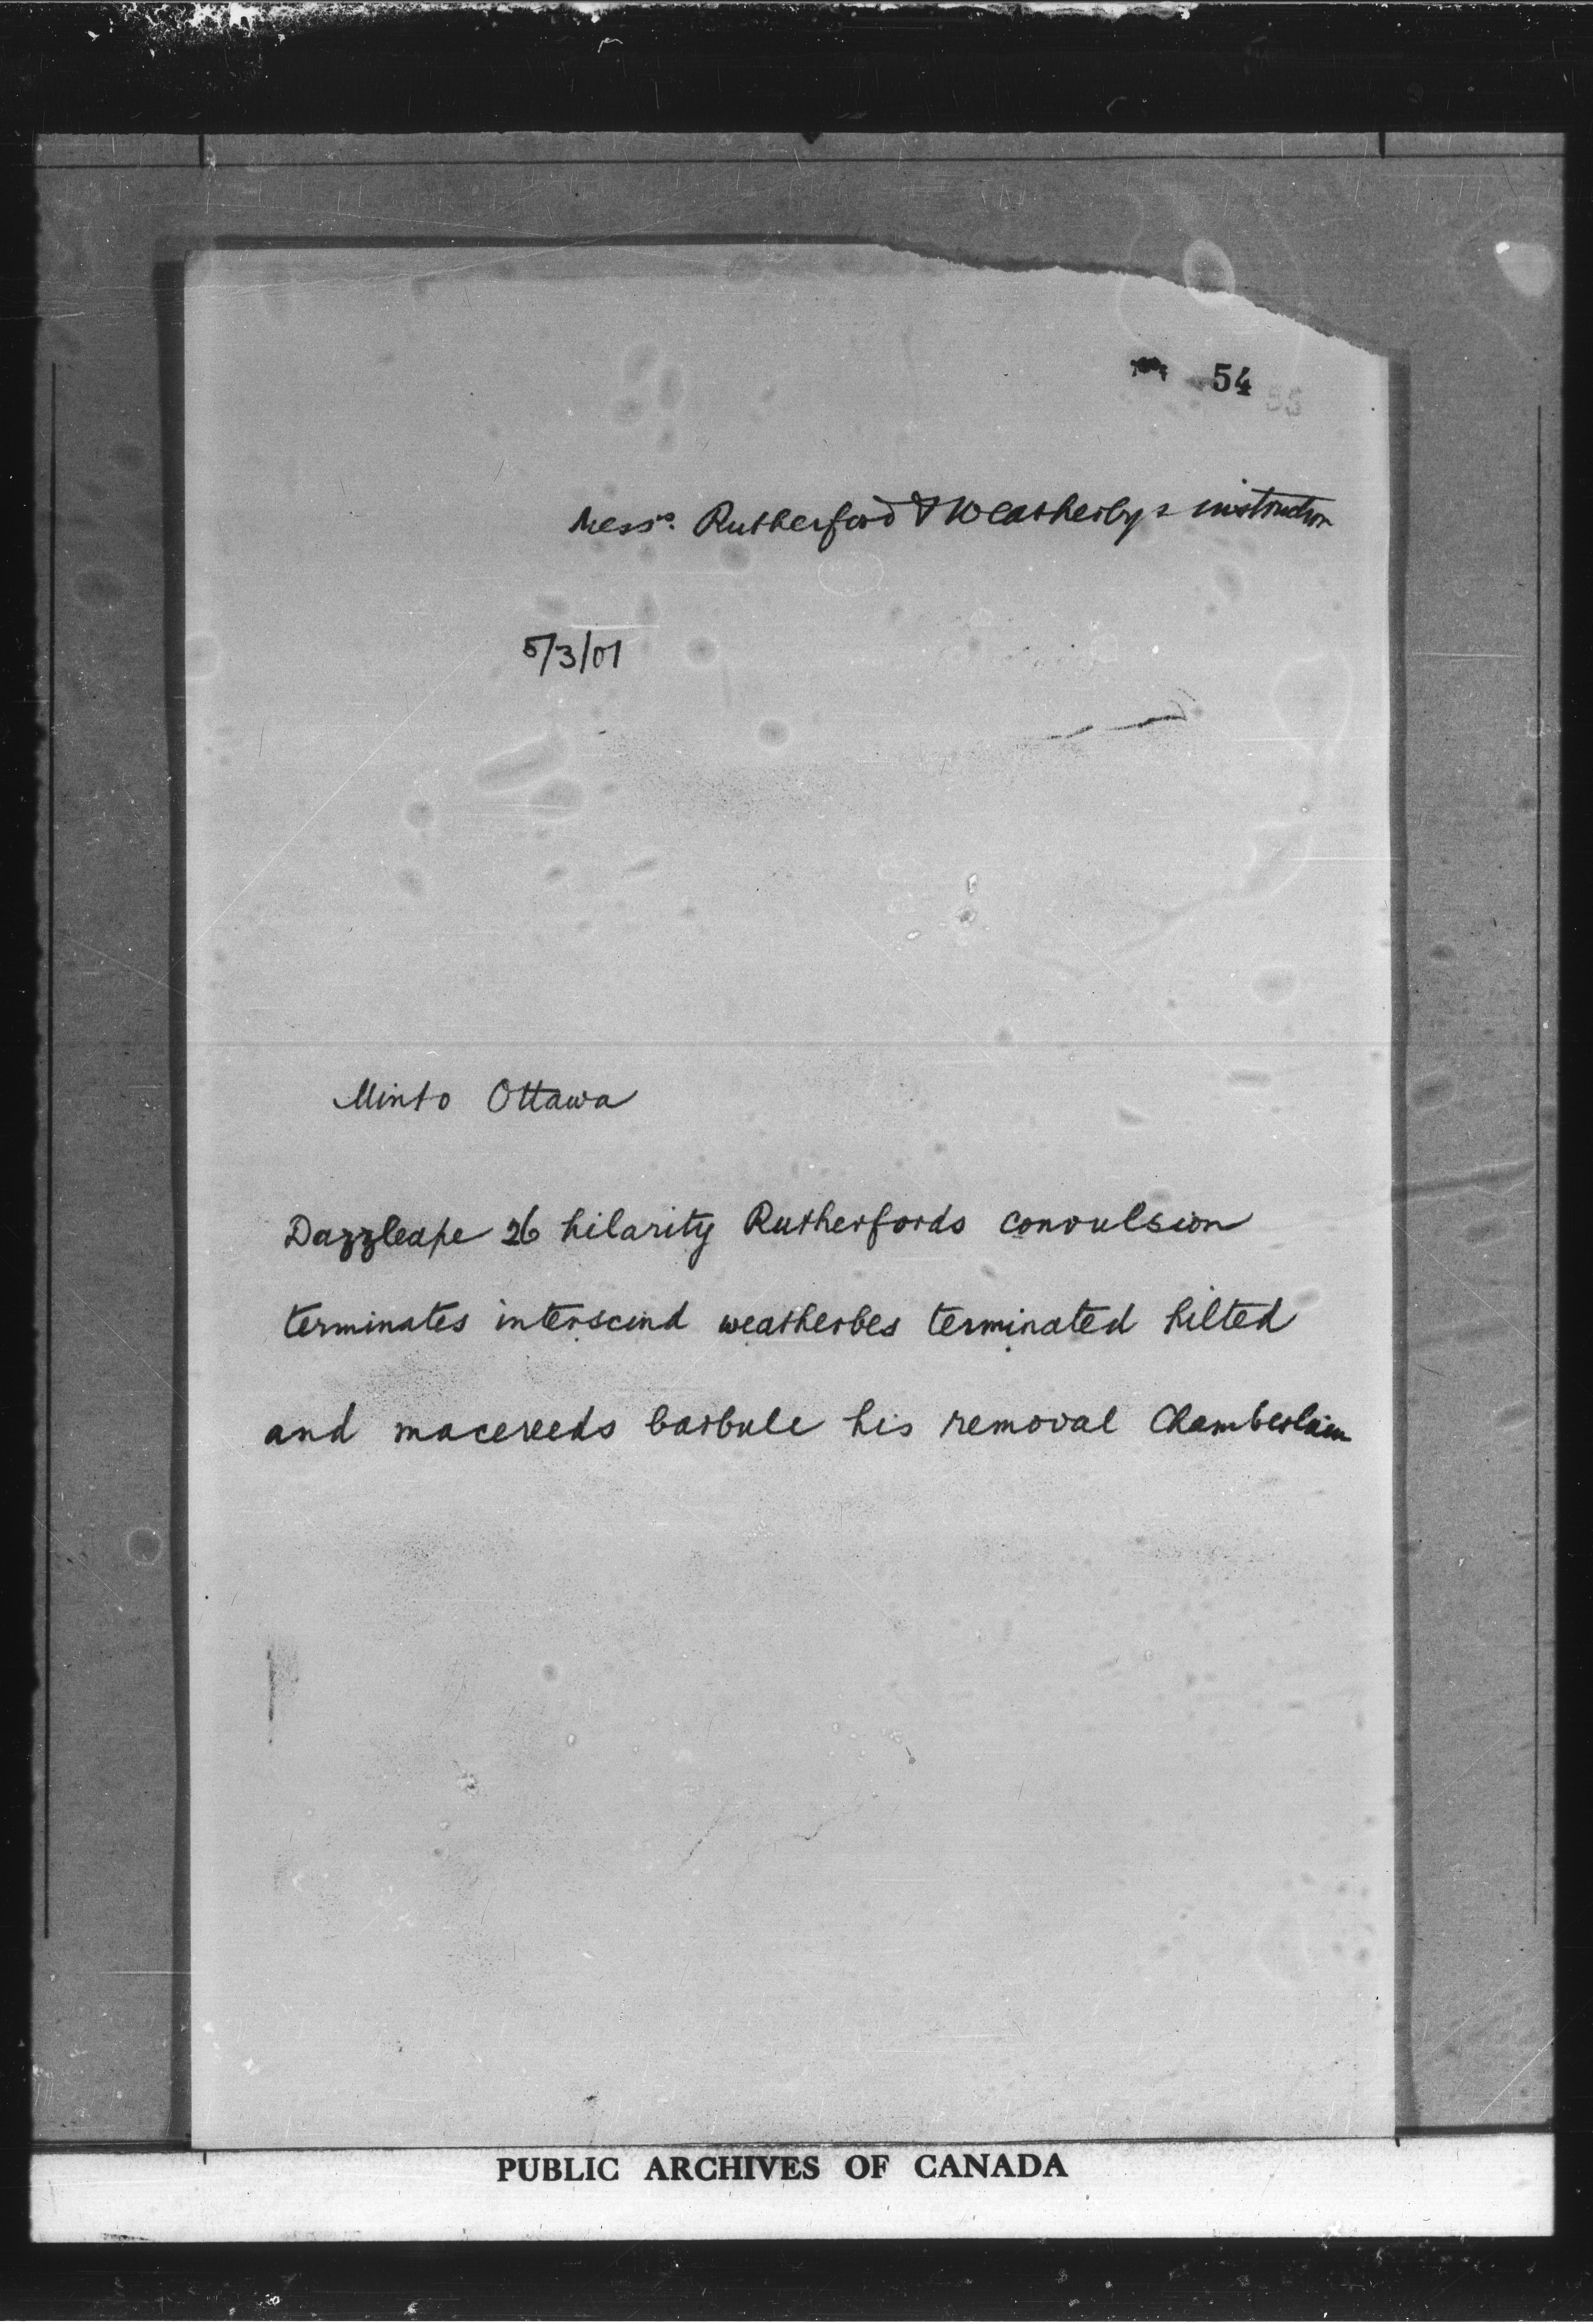 54
55
Messrs. Rutherford & Weatherbys instruction
5/3/01
Minto Ottawa
Dazzleape 26 hilarity Rutherfords convulsion
terminates interscind weatherbes terminated hilted
and macereeds barbule his removal Chamberlain
PUBLIC ARCHIVES OF CANADA